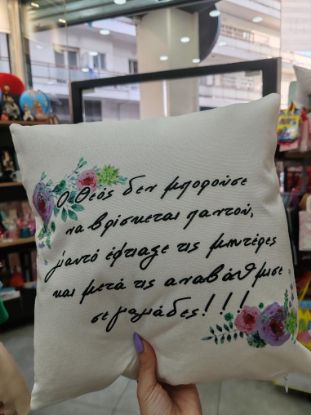 Ο Θεός δεν μπορούσε
να βρίσκεται παντού,
γι'αυτό έφτιαξε τις μητέρες
και μετά τις αναβάθμισε
σε γιαγιάδες!!!